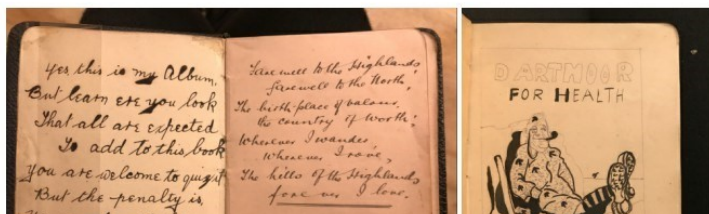 Yes, this is my Album,
But learn ere you look
That all are expected
To add to this book
You are welcome to quiz it
But the penalty is,
Farewell to the Highlands
farewell to the North,
The birth place of valour,
the country of worth:
Wherever I wander,
Wherever I rove,
The hills of the Highlands
for ever I love.
DARTMOOR
FOR HEALTH